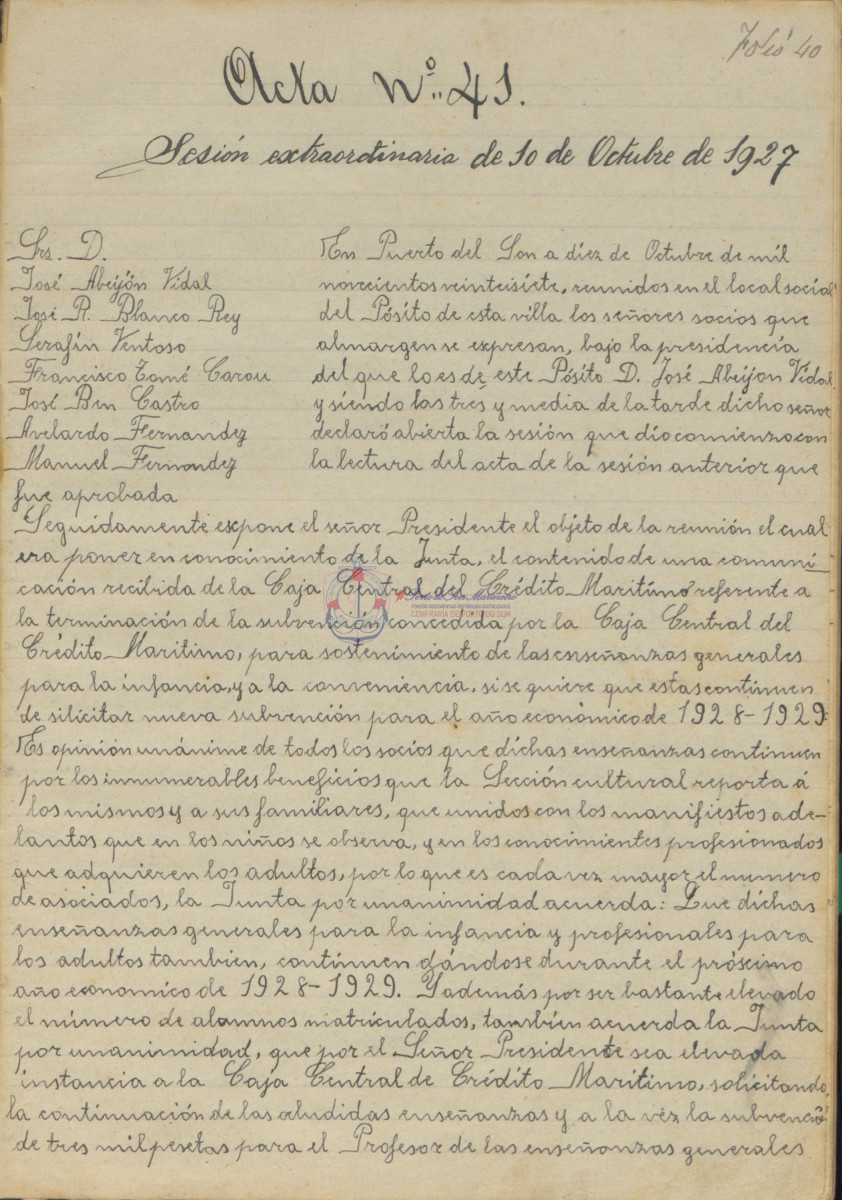 Folió 40
Acta Nº. 41.
Sesión extraordinaria de 10 de Octubre de 1927
Srs. D.
José Abeijón Vidal
José R. Blanco Rey
Serafín Ventoso
Francisco Tomé Carou
José Ben Castro
Avelardo Fernandez
Manuel Fernandez
En Puerto del Son a diez de Octubre de mil
novecientos veintisiete, reunidos en el local social
del Pósito de esta villa los señores socios que
almargen se expresan, bajo la presidencia
del que lo es de este Pósito D. José Abeijon Vidal
y siendo las tres y media de la tarde dicho señor
declaró abierta la sesión que dío comienzo con
la lectura del acta de la sesión anterior que
fue aprobada
Seguidamente expone el señor Presidente el objeto de la reunión el cual
era poner en conocimiento de la Junta, el contenido de una comuni
cación recibida de la Caja Central del Crédito Maritimo referente a
la terminación de la subvención concedida por la Caja Central del
Crédito Maritimo, para sostenimiento de las enseñanzas generales
para la infancia, y a la conveniencia, si se quiere que estas contínuen
de silicitar nueva subvención para el año económico de 1928-1929
Es opinión unánime de todos los socios que dichas enseñanzas continuen
por los innumerables beneficios que la Sección cultural reporta á
los mismos y a sus familiares, que unidos con los manifiestos ade-
lantos que en los niños se observa, y en los conocimientes profesionados
que adquieren los adultos, por lo que es cada vez mayor el numero
de asociados, la Junta por unanimidad acuerda: Que dichas
enseñanzas generales para la infancia y profesionales para
los adultos tambien, contínuen dándose durante el próscimo
año economico de 1928-1929. Y además por ser bastante elevado
el número de alamnos matriculados, también acuerda la Junta
por unanimidad, que por el Señor Presidente sea elevada
instancia a la Caja Central de Crédito Maritimo, solicitando,
la continuación de las aludidas enseñanzas y a la vez la subvenció
de tres mil pesetas para el Profesor de las enseñanzas generales
FONDOS DOCUMENTAIS HISTÓRICOS DIXITALIZADOS
CONFRARÍA DE PORTO DO SON